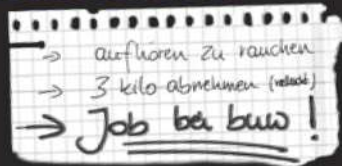 → aufhören zu rauchen
→ 3 kilo abnehmen
→ Job bei buw!